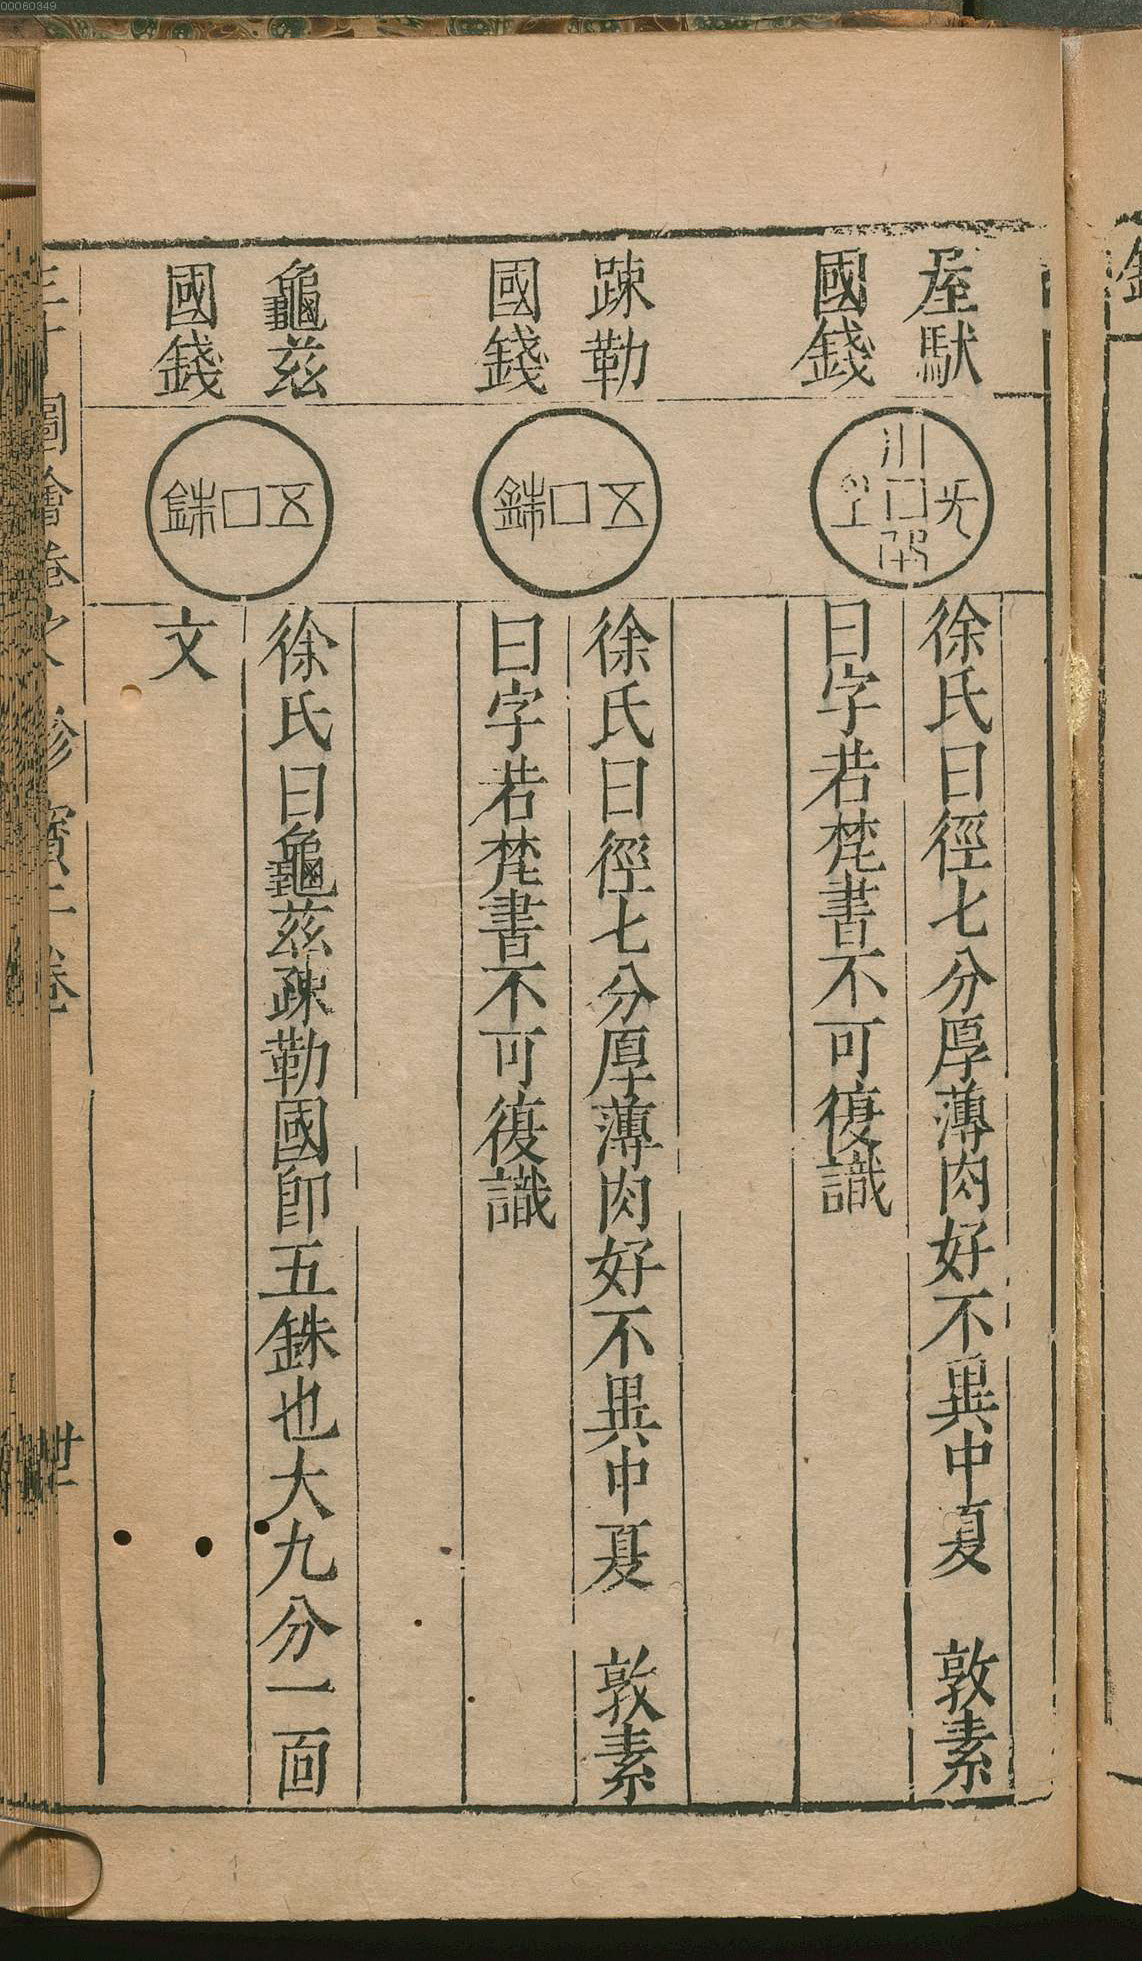 00060349
屋馱
國錢
徐氏曰徑七分厚薄肉好不異中夏　敦素
曰字若梵書不可復識
踈勒
國錢
五銖
徐氏曰徑七分厚薄肉好不異中夏　敦素
曰字若梵書不可復識
龜茲
國錢
五銖
徐氏曰龜茲踈勒國卽五銖也大九分一面
文
圖會卷之 珍寶二卷